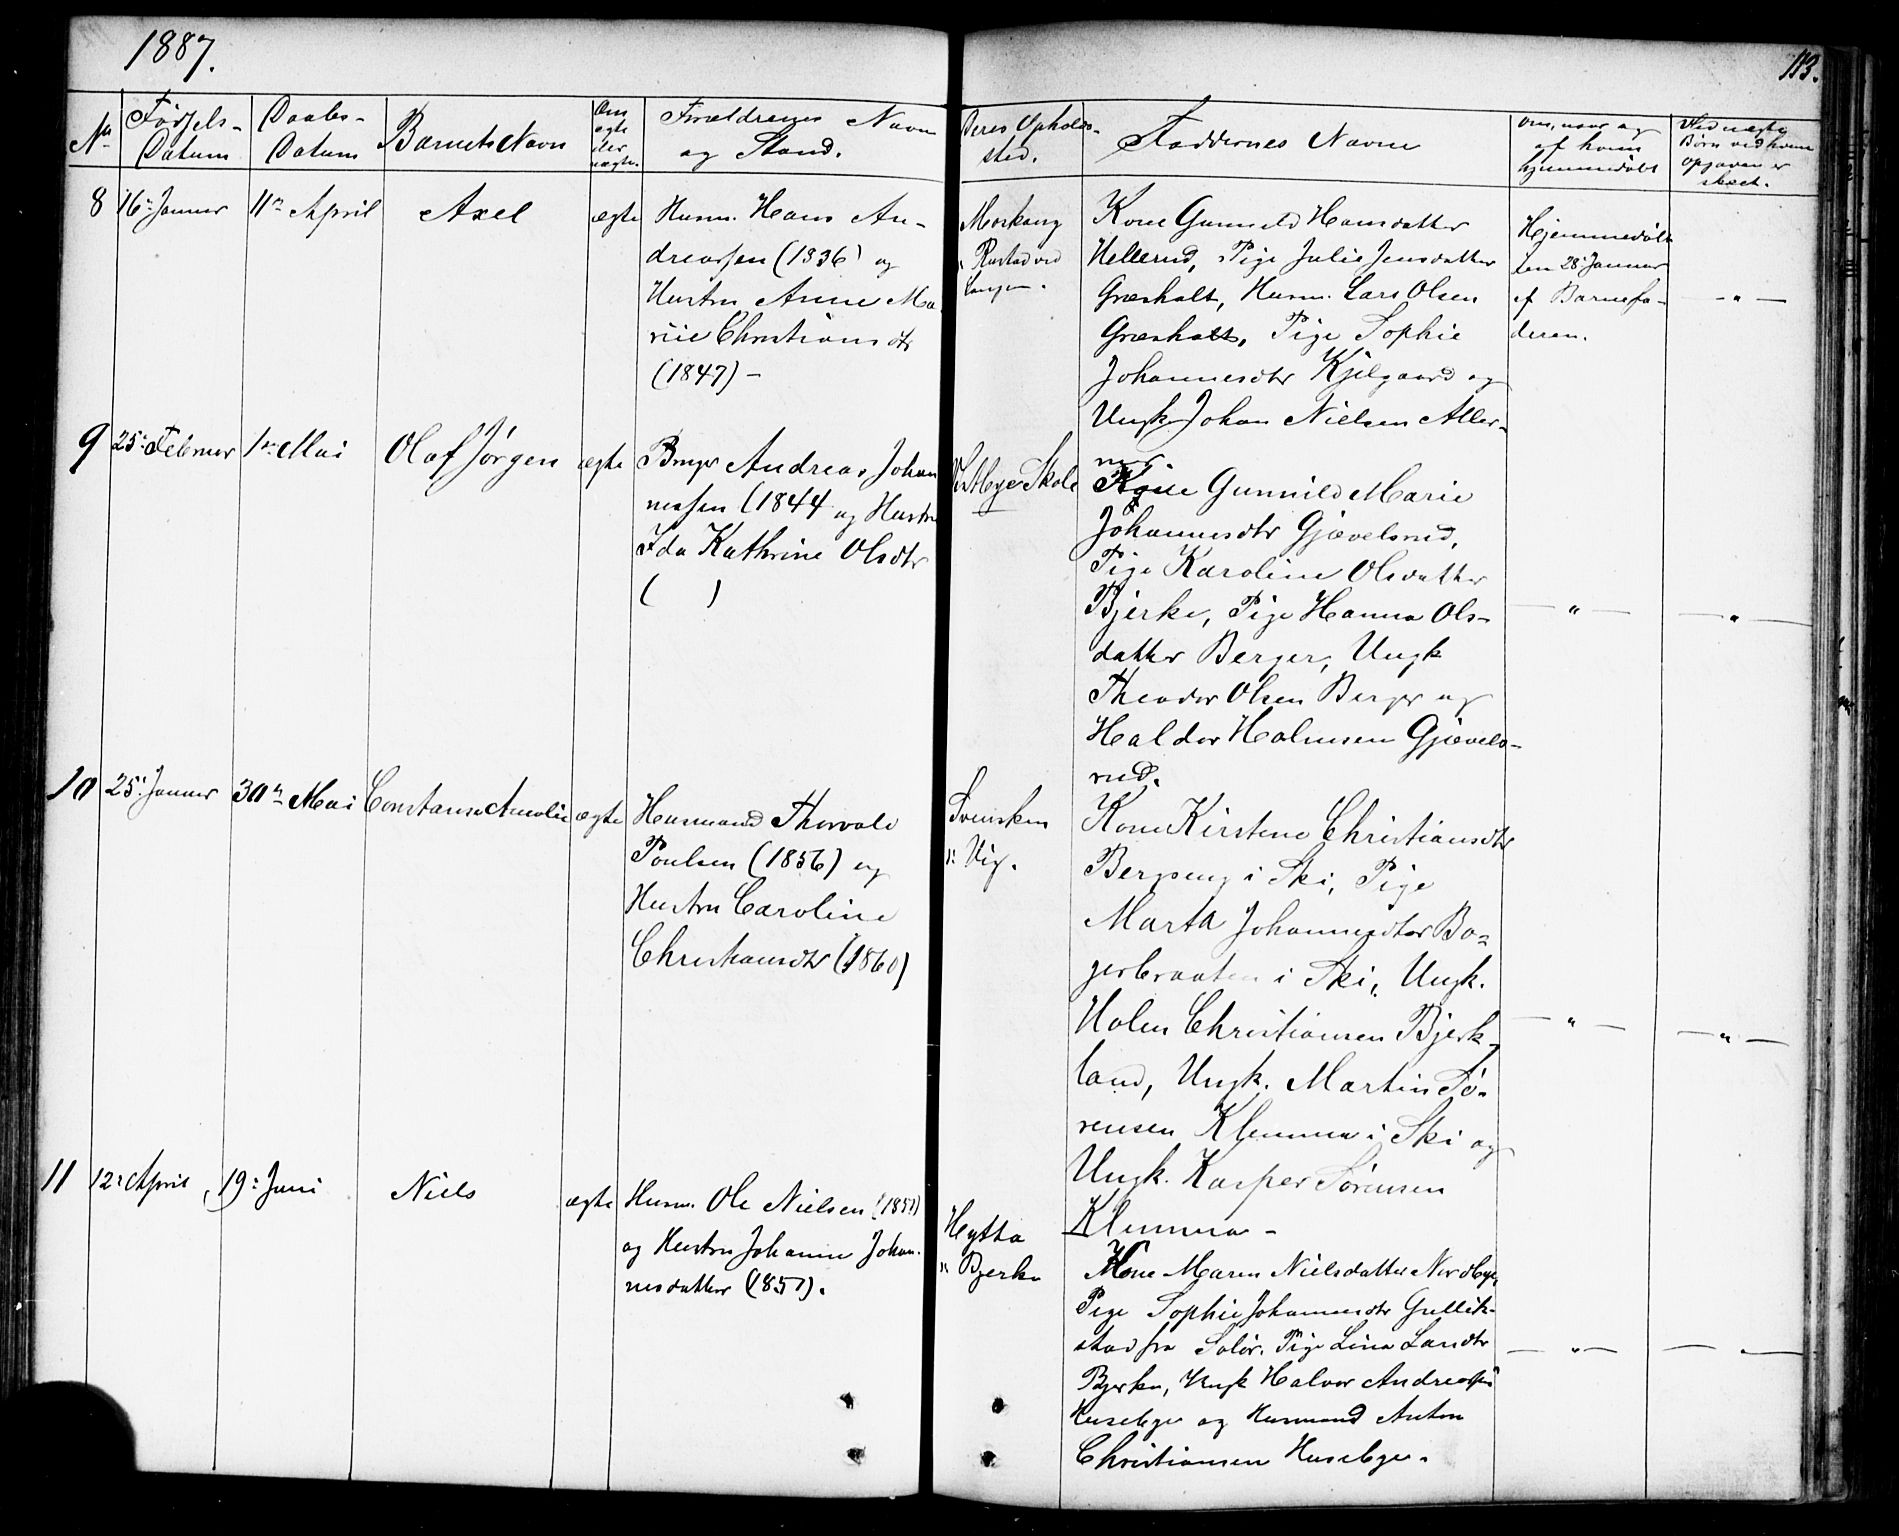 1887.
113.
No
Fødsels-
Datum
Daabs-
Datum
Barnets Navn
Om
egte
eller
uægte.
Forældrenes Navn
og Stand.
Deres Opholds-
sted.
Faddernes Navne
Om, naar og
af hvem
hjemmedøbt
Ved uægte
Børn ved hvem
Opgaven er
skeet.
8
16: Januar
11te April
Axel
ægte
Husm. Hans An-
dreassen (1836) og
Hustru Anne Ma-
rie Christiansdtr
(1847) -
Moskaug
Rustad ved
Langen.
Kone Gunnild Hansdatter
Hellerud, Pige Julie Jensdatter
Græsholt, Husm. Lars Olsen
Græsholt, Pige Sophie
Johannesdtr Kjelgaard og
Ungk Johan Nielsen Aller-
Hjemmedøbt
den 28: Januar
af Barnefa-
deren.
- " -
9
25: Februar
1te Mai
Olaf Jørgen
ægte
Bruger Andreas Johan
nessen (1844 og Hustru
Ida Kathrine Olsdtr
( )
Skole
Kone Gunnild Marie
Johannesdtr Gjævelsrud,
Pige Karoline Olsdatter
Bjerke, Pige Hanna Ols-
datter Berger, Ungk
Theodor Olsen Berger og
Haldor Holmsen Gjævels-
rud.
- " -
- " -
10
25: Januar
30te Mai
Constanse Amalie
ægte
Husmand Thorvald
Poulsen (1856) og
Hustru Caroline
Christiansdtr (1860)
Svensken
": Vig.
Kone Kirstine Christiansdtr
Bergseng i Ski, Pige
Marta Johannesdtr Bø-
gerbraaten i Ski, Ungk.
Holm Christiansen Bjerk-
land, Ungk. Martin Sø-
rensen Klemma i Ski og
Ungk. Kasper Sørensen
Klemma -
- " -
- " -
11
12: April
19: Juni
Niels
ægte
Husm. Ole Nielsen
og Hustru Johanne Johan-
nesdatter (1857).
Hytta
": Bjerke
Kone Maren Nielsdatter Nordbye,
Pige Sophie Johannesdtr Gullik-
stad fra Solør. Pige Lina Larsdtr
Bjerke, Ungk Halvor Andreassen
Husebye og Husmand Anton
Christiansen Husebye.
- " -
- " -